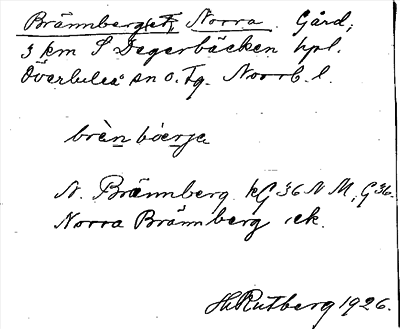 Brännberg(et), Norra. Gård;
3 km S Degerbäcken hpl.
Överluleå sn o. tg. Norrb. l.
brèn bærje
N. Brännberg kG 36 N M, G 36.
Norra Brännberg ek.
H Rutberg 1926.